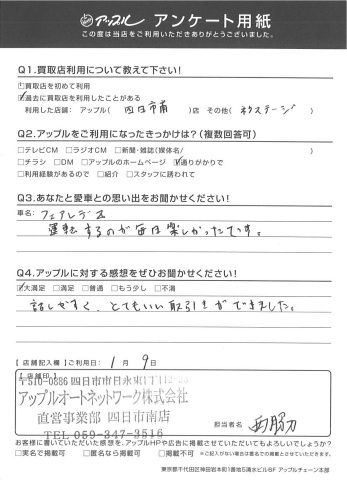 アップル アンケート用紙
この度は当店をご利用いただきありがとうございました。
Q1.買取店利用について教えて下さい!
□買取店を初めて利用
☑過去に買取店を利用したことがある
利用した店舗:アップル( 四日市南 )店 その他( ネクステージ )
Q2.アップルをご利用になったきっかけは?(複数回答可)
□テレビCM □ラジオCM □新聞・雑誌(媒体名/ )
□チラシ □DM □アップルのホームページ ☑通りがかりで
□利用経験があるので □紹介 □スタッフに誘われて
Q3.あなたと愛車との思い出をお聞かせください!
車名:フェアレディZ
運転するのが毎日楽しかったです。
Q4.アップルに対する感想をぜひお聞かせください!
☑大満足 □満足 □普通 □もう少し □不満
話しやすく、とてもいい取引きができました。
【店舗記入欄】ご利用日: 1月 9日
【店舗印】
〒510-0886 四日市市日永東1丁目
アップルオートネットワーク株式会社
直営事業部 四日市南店
TEL 059-347-3516
担当者名
お客様に書いていただいた感想を、アップルHPや広告に掲載させていただいてもよろしいでしょうか?
□実名で掲載可 □匿名なら掲載可 □掲載不可 ※ご記入がない場合は匿名での掲載とさせていただきます。
東京都千代田区神田岩本町1番地5清水ビル6F アップルチェーン本部